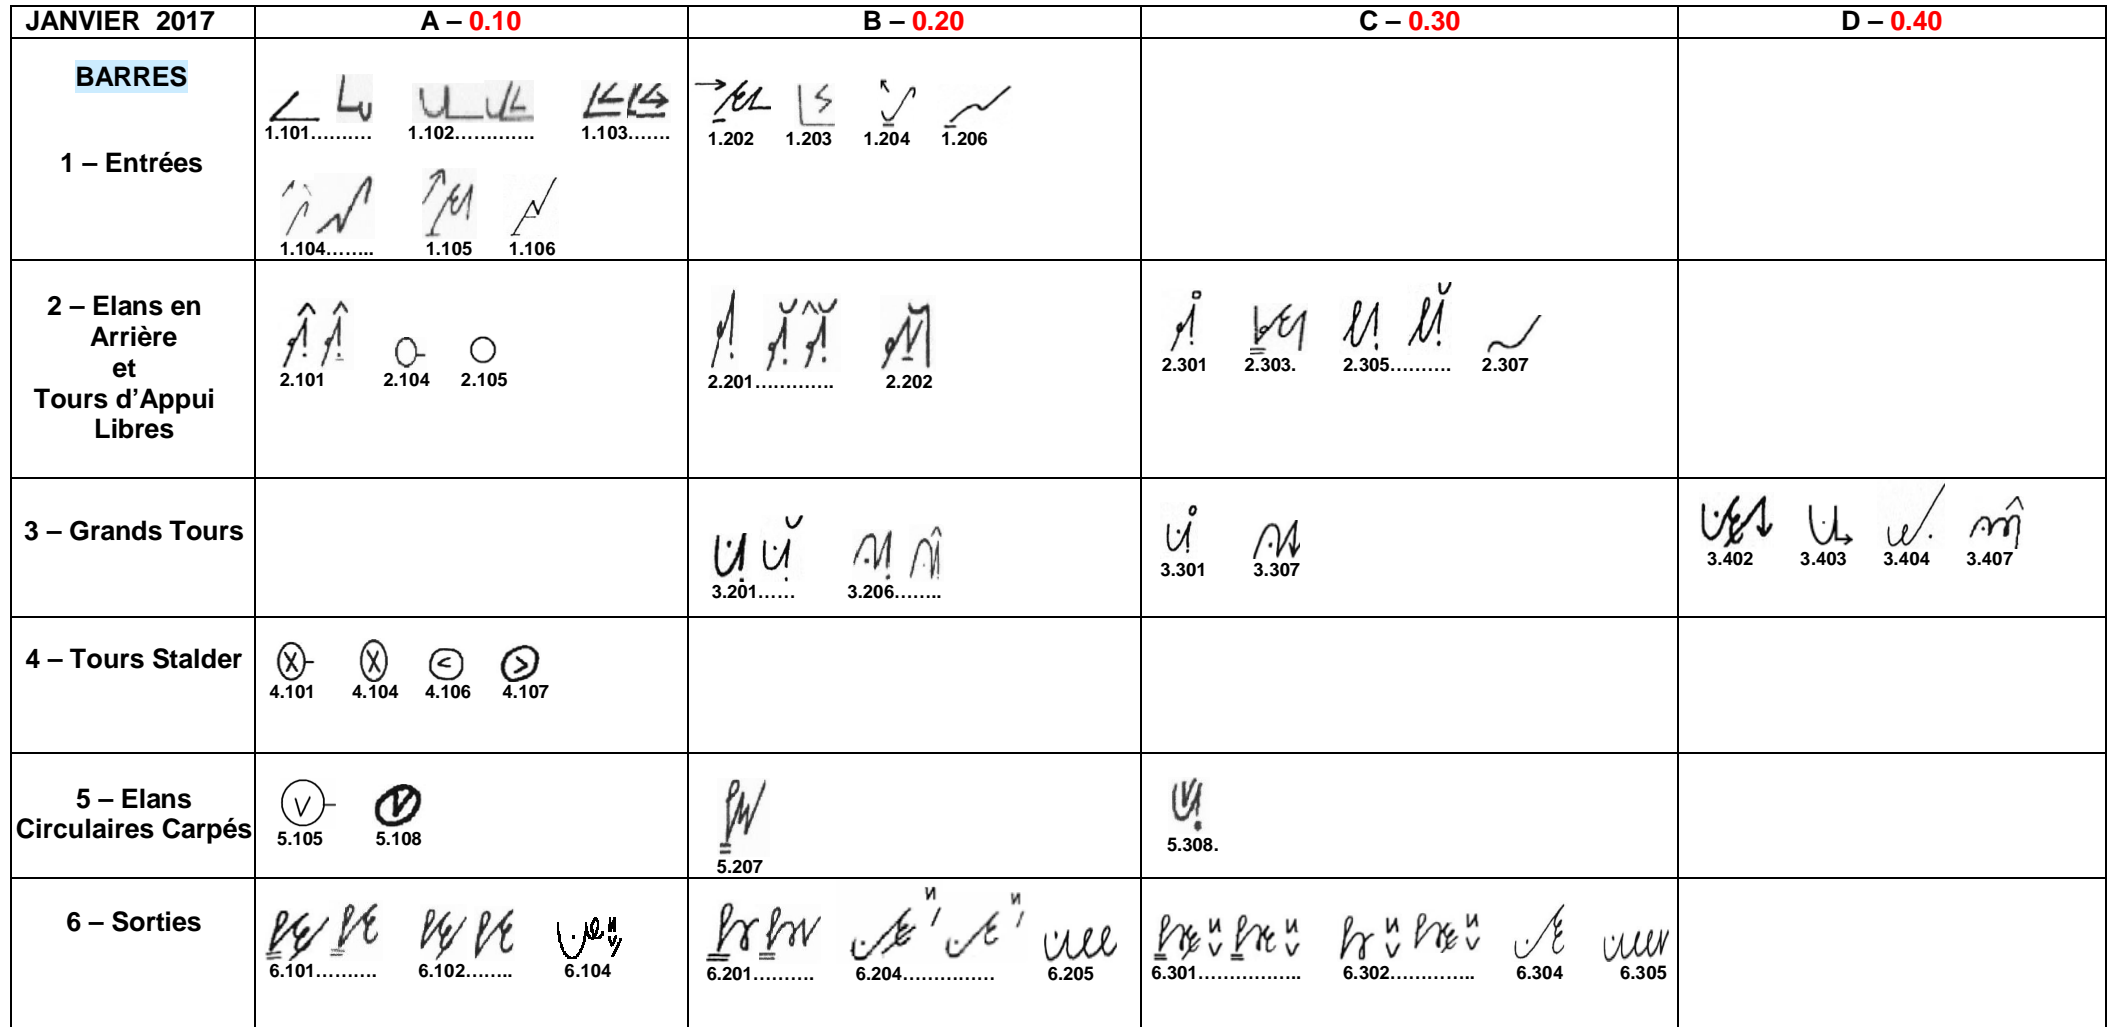 JANVIER 2017 A – 0.10 B – 0.20 C – 0.30 D – 0.40
BARRES
1 – Entrées
1.101.......... 1.102............. 1.103.......
1.104........ 1.105 1.106
1.202 1.203 1.204 1.206
2 – Elans en
Arrière
et
Tours d’Appui
Libres
2.101 2.104 2.105
2.201............. 2.202
2.301 2.303. 2.305.......... 2.307
3 – Grands Tours
3.201...... 3.206........
3.301 3.307
3.402 3.403 3.404 3.407
4 – Tours Stalder
4.101 4.104 4.106 4.107
5 – Elans
Circulaires Carpés
5.105 5.108
5.207
5.308.
6 – Sorties
6.101.......... 6.102........ 6.104
6.201.......... 6.204............... 6.205
6.301................. 6.302............. 6.304 6.305